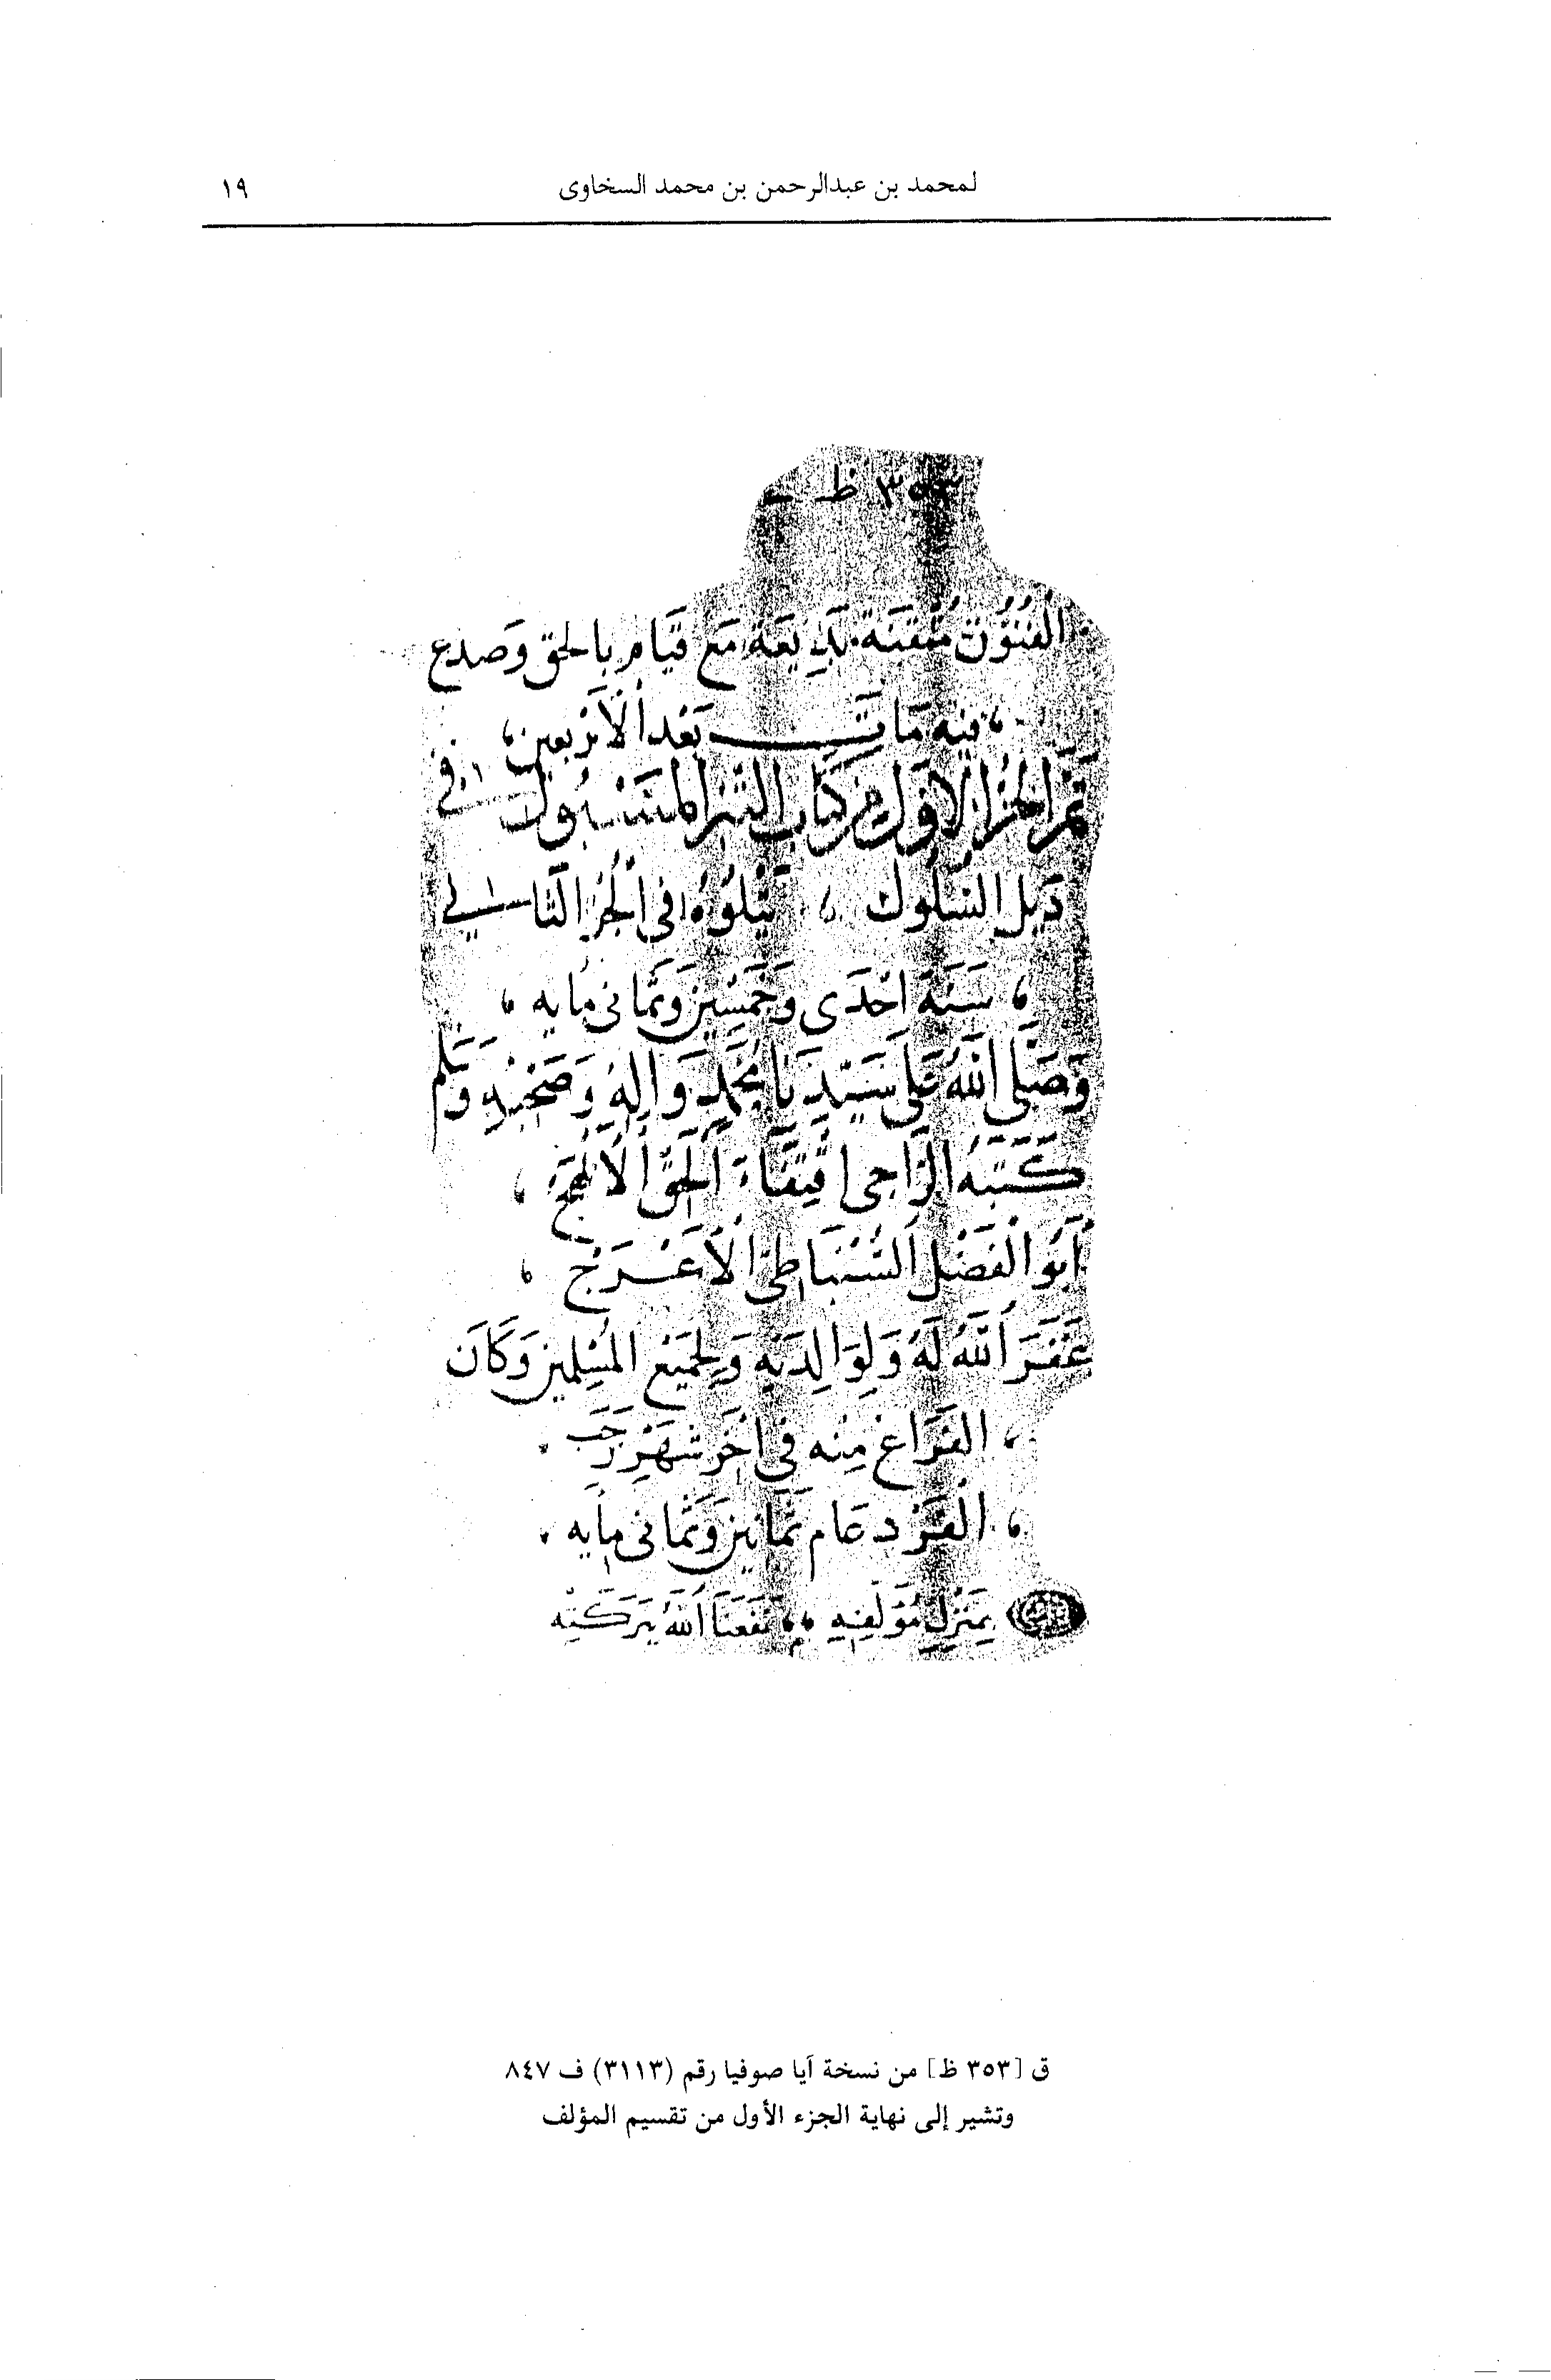 لمحمد بن عبدالرحمن بن محمد السخاوى
١٩
٣٥٣ ظ
الفُنُوْن مُتْقَنَة بَدِيعَة مَع قيَام بالحق وَصدع
فيه مَاتَ بَعْد الأَرْبعين
تَمَّ الجُزْءُ الاوَّل مِن كتاب التِّبْر المَسْبُوك في
ذَيل السُّلُوك يَتْلُوهُ في الجُزْء الثاني
سَنَة اِحْدَى وَخَمْسِين وَثَمانى مايه
وَصَلَّى اللهُ عَلى سَيّدِنَا مُحَمّدٍ وَالِهِ وَصَحْبِهِ وَسَلم
كَتَبَهُ الرَّاجى اقتفَاء الحَقّ الأَبْلَج
أبُو الفَضْل السُّنْبَاطِىّ الأَعْرَج
غَفَرَ اللهُ لَهُ وَلِوَالِدَيْه وَلِجَمِيْع المُسْلمين وَكَانَ
الفَرَاغ مِنْه في آخر شَهْر رَجَب
الفَرْد عَام ثَمَانين وَثَمانى مايه
بمَنْزِل مُؤَلّفِهِ نَفَعَنَا اللهُ ببَركتِه
ق [٣٥٣ ظ] من نسخة آيا صوفيا رقم (٣١١٣) ف ٨٤٧
وتشير إلى نهاية الجزء الأول من تقسيم المؤلف